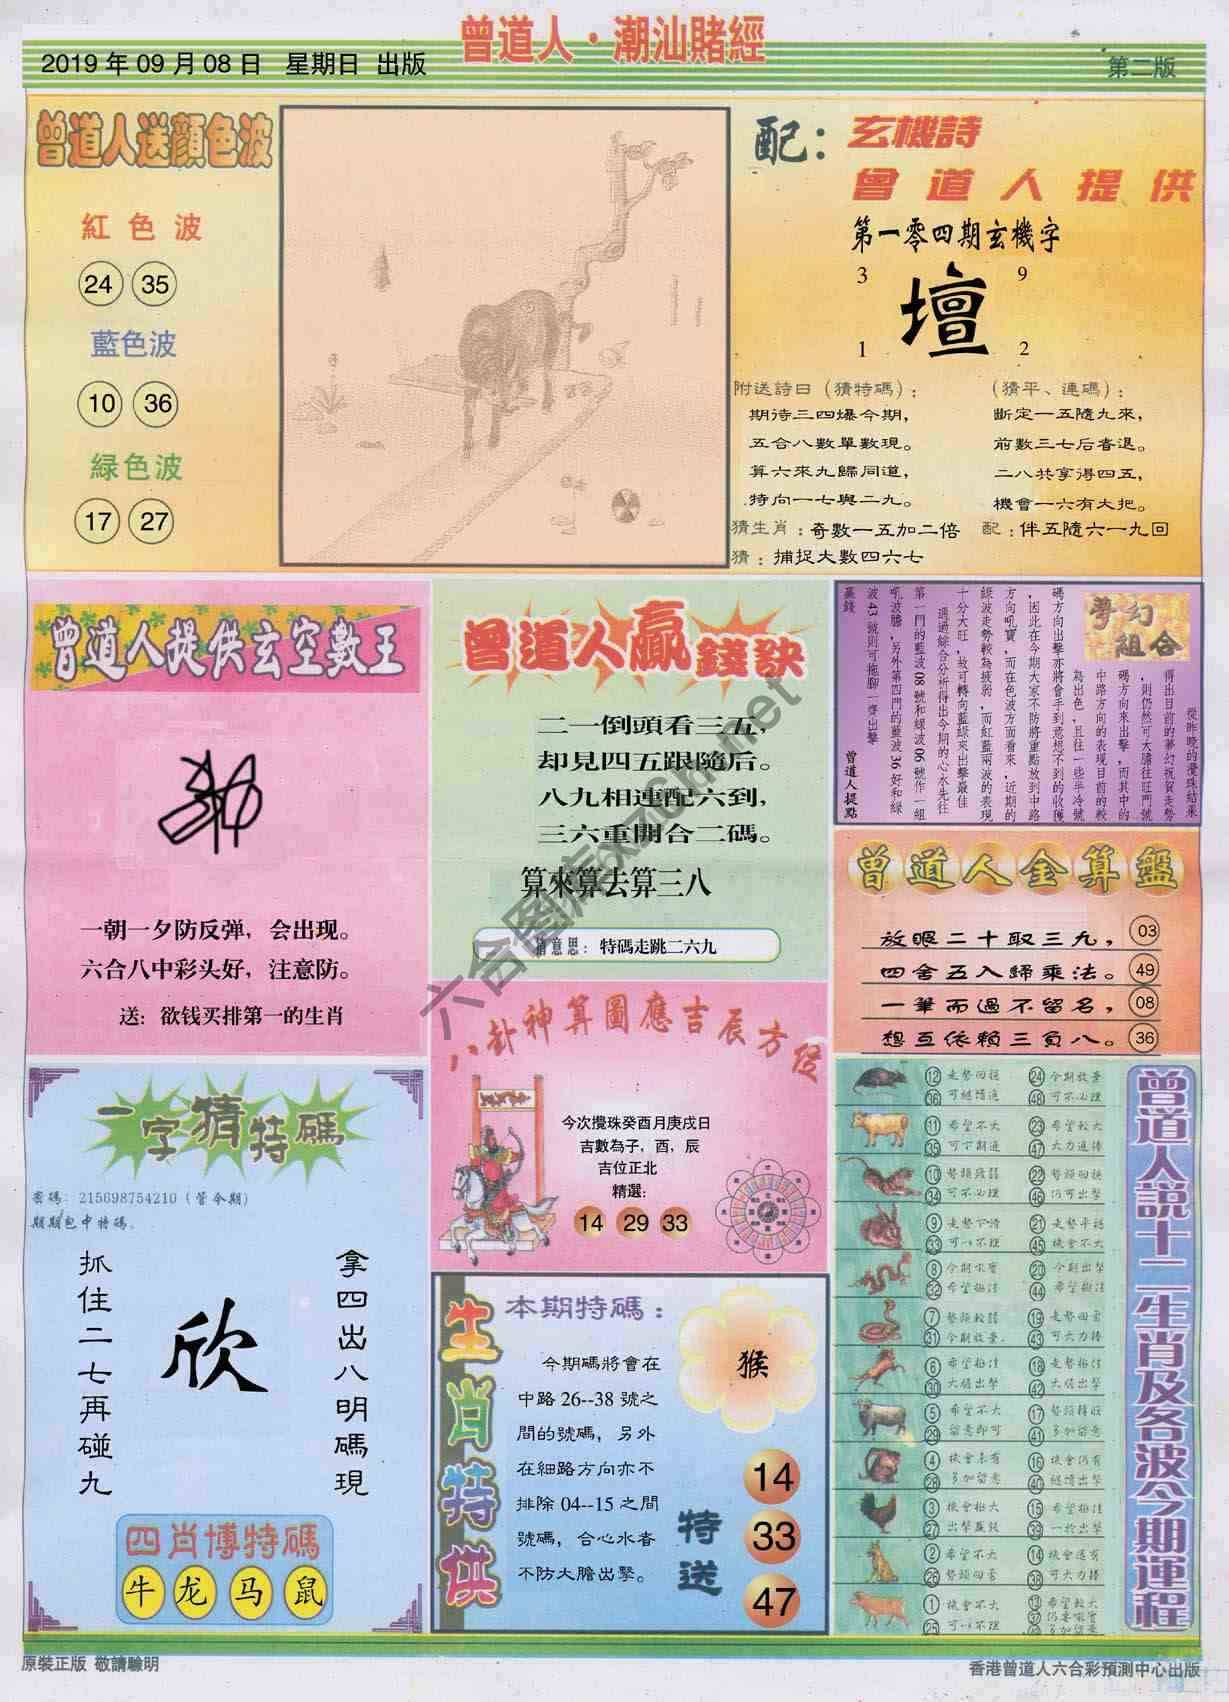 曾道人·潮汕賭經
2019年09月08日 星期日 出版
第二版
曾道人送顏色波
紅色波
24 35
藍色波
10 36
綠色波
17 27
配：玄機詩
曾道人提供
第一零四期玄機字
3 9
壇
1 2
附送詩曰（猜特碼）：
期待三四爆今期，
五合八數單數現。
算六來九歸同道，
特向一七與二九。
（猜平、連碼）：
斷定一五隨九來，
前數三七后杳退。
二八共享得四五，
機會一六有大把。
猜生肖：奇數一五加二倍
配：伴五隨六一九回
猜：捕捉大數四六七
曾道人提供玄空數王
一朝一夕防反弹，会出现。
六合八中彩头好，注意防。
送：欲钱买排第一的生肖
曾道人贏錢訣
二一倒頭看三五，
却見四五跟隨后。
八九相連配六到，
三六重開合二碼。
算來算去算三八
猜意思：特碼走跳二六九
夢幻組合
從昨晚的攪珠結果
得出目前的夢幻祝賀走勢
，則仍然可大膽往旺門號
碼方向來出擊，而其中的
中路方向的表現目前的較
為出色，且往一些半冷號
碼方向出擊亦將會手到意想不到的收穫
，因此在今期大家不防將重點放到中路
方向吼寶，而在色波方面看來，近期的
綠波走勢較為疲弱，而紅藍兩波的表現
十分大旺，故可轉向藍綠來出擊最佳
通過綜合分析得出今期的心水先往
第一門的藍波08號和綠波06號作一組
吼波膽，另外第四門的藍波36好和綠
波43號則可拖腳一齊出擊
贏錢
曾道人提點
曾道人金算盤
放眼二十取三九， 03
四舍五入歸乘法。 49
一筆而過不留名， 08
想互依賴三負八。 36
八卦神算圖應吉辰方位
今次攪珠癸酉月庚戌日
吉數為子，酉，辰
吉位正北
精選：
14 29 33
一字猜特碼
密碼：215698754210（管今期）
期期包中特碼。
拿四出八明碼現
欣
抓住二七再碰九
四肖博特碼
牛 龙 马 鼠
生肖特供
本期特碼：
今期碼將會在
中路26--38號之
間的號碼，另外
在細路方向亦不
排除04--15之間
號碼，合心水者
不防大膽出擊。
猴
特送
14
33
47
曾道人說十二生肖及各波今期運程
12 走勢回穩 24 今期放棄
36 可繼續追 48 可不必理
11 希望不大 23 希望較大
35 可下期追 47 大力追捧
10 勢頭疲弱 22 勢頭回穩
34 可不必理 46 仍可出擊
9 走勢下滑 21 走勢平穩
33 可以不理 45 機會不大
8 20 今期出擊
32 希望極渣 44 希望極渣
7 勢頭較弱 19 走勢回落
31 今期放棄 43 可大力捧
6 希望極佳 18 走勢極佳
30 大膽出擊 42 大膽出擊
5 希望不大 17
29 留意即可 41 多加留意
4 機會未有 16 機會仍有
28 多加留意 40 繼續出擊
3 機會極大 15 希望極佳
27 出擊贏錢 39 一於出擊
2 希望不大 14 機會還有
26 勢頭回落 38 可大力捧
1 機會不大 13 希望較大
25 可以不理 37
49 多加留意
六合图库xz6id.net
原裝正版 敬請驗明
香港曾道人六合彩預測中心出版